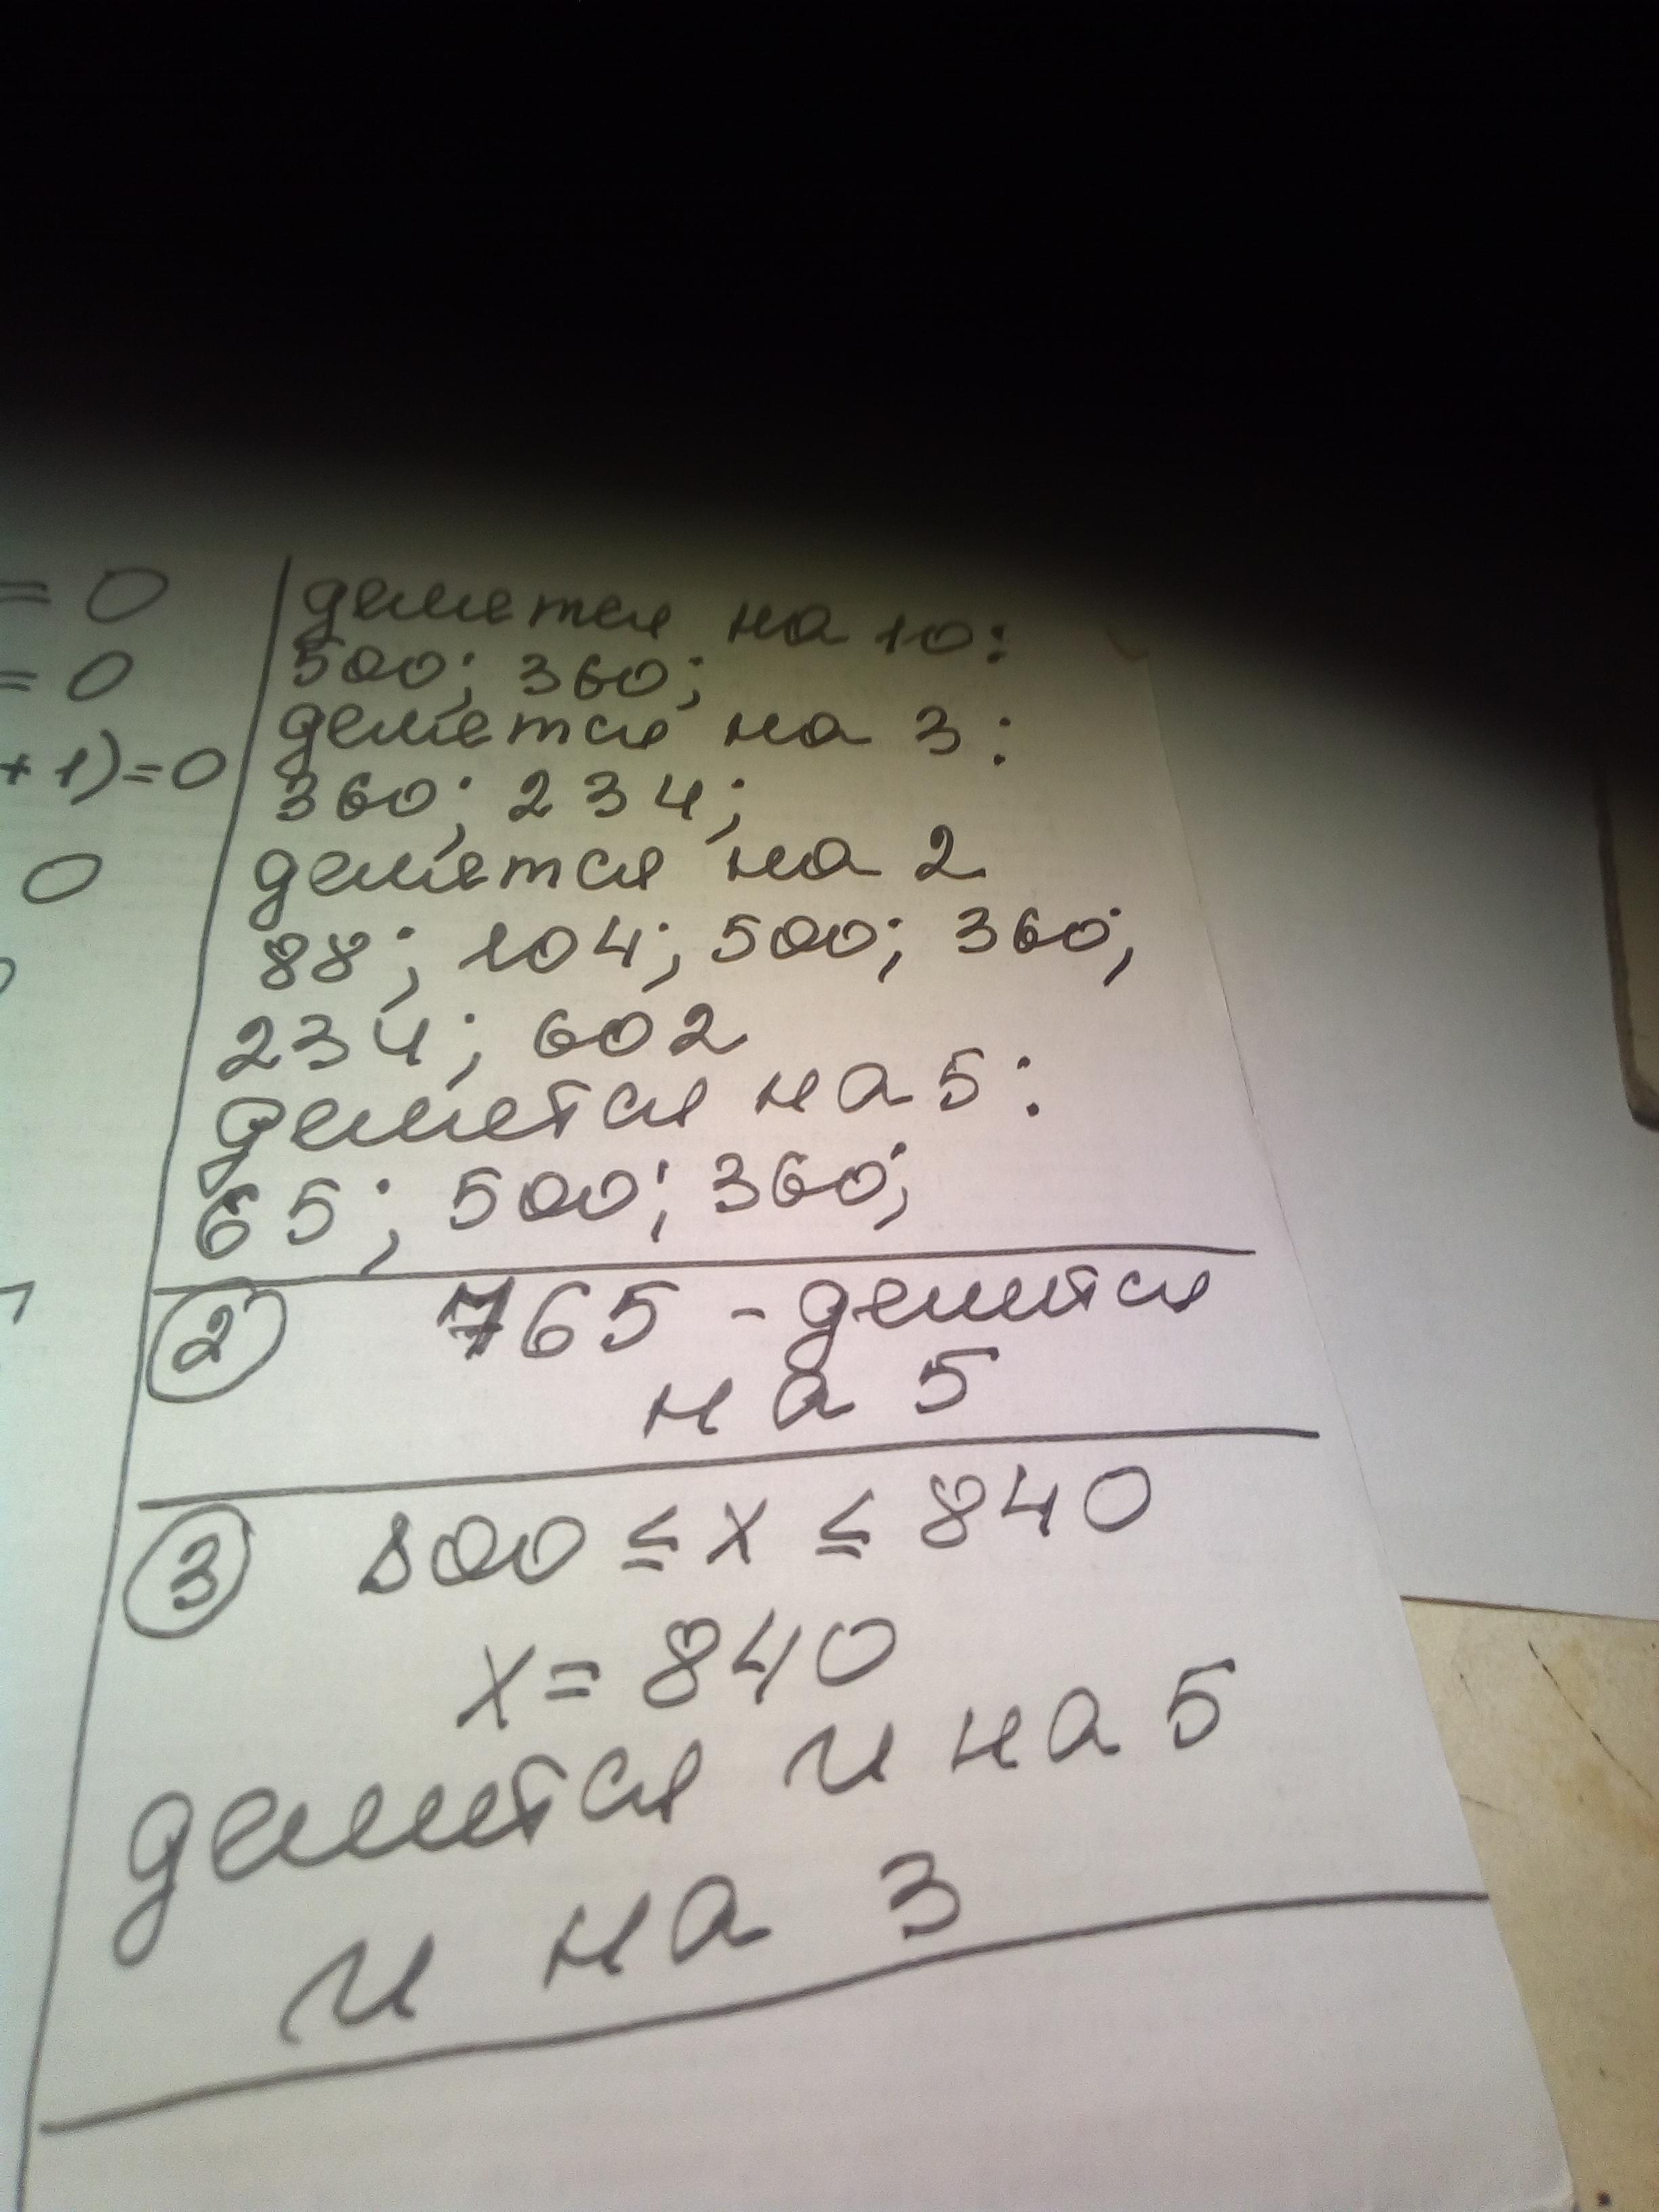 = 0
= 0
+ 1) = 0
0
делется на 10:
500; 360;
делется на 3:
360; 234;
делется на 2
88; 104; 500; 360;
234; 602
делется на 5:
65; 500; 360;
2 765 - делится
на 5
3 800 ≤ x ≤ 840
x = 840
делится и на 5
и на 3